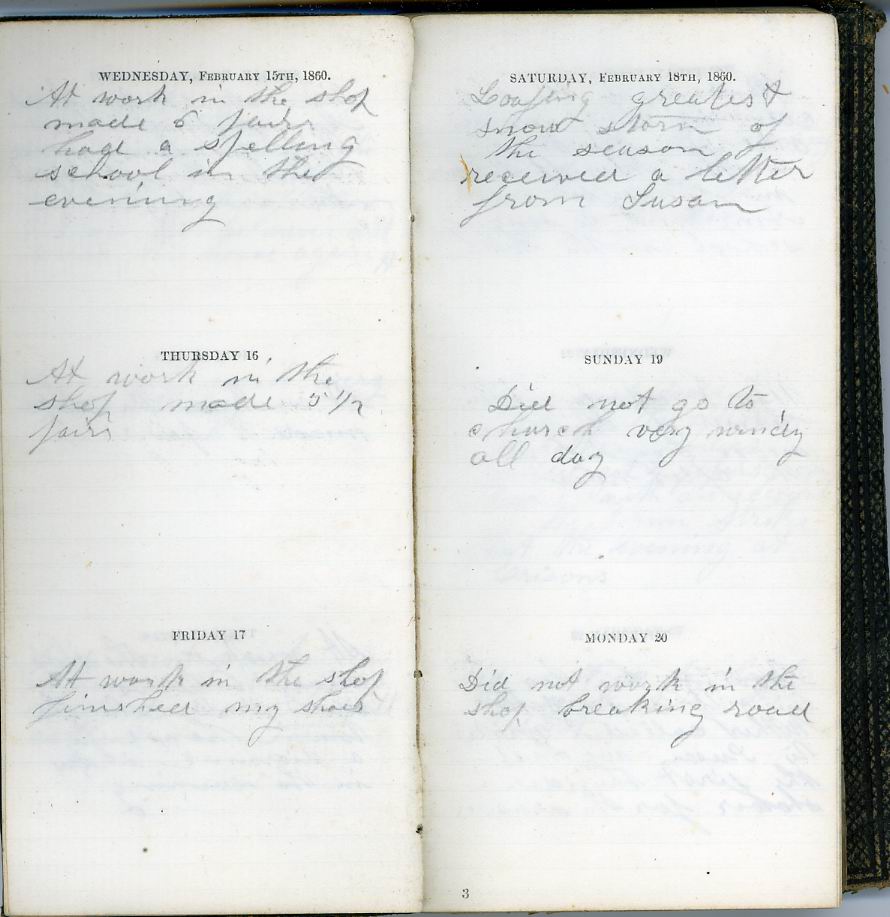 WEDNESDAY, FEBRUARY 15TH, 1860.
At work in the shop
made 5 pairs
had a spelling
school in the
evening
THURSDAY 16
At work in the
shop made 5 1/2
pairs
FRIDAY 17
At work in the shop
finished my shoes
SATURDAY, FEBRUARY 18TH, 1860.
Loafing greatest
snow storm of
the season
received a letter
from Susan
SUNDAY 19
Did not go to
church very windy
all day
MONDAY 20
Did not work in the
shop breaking road
3